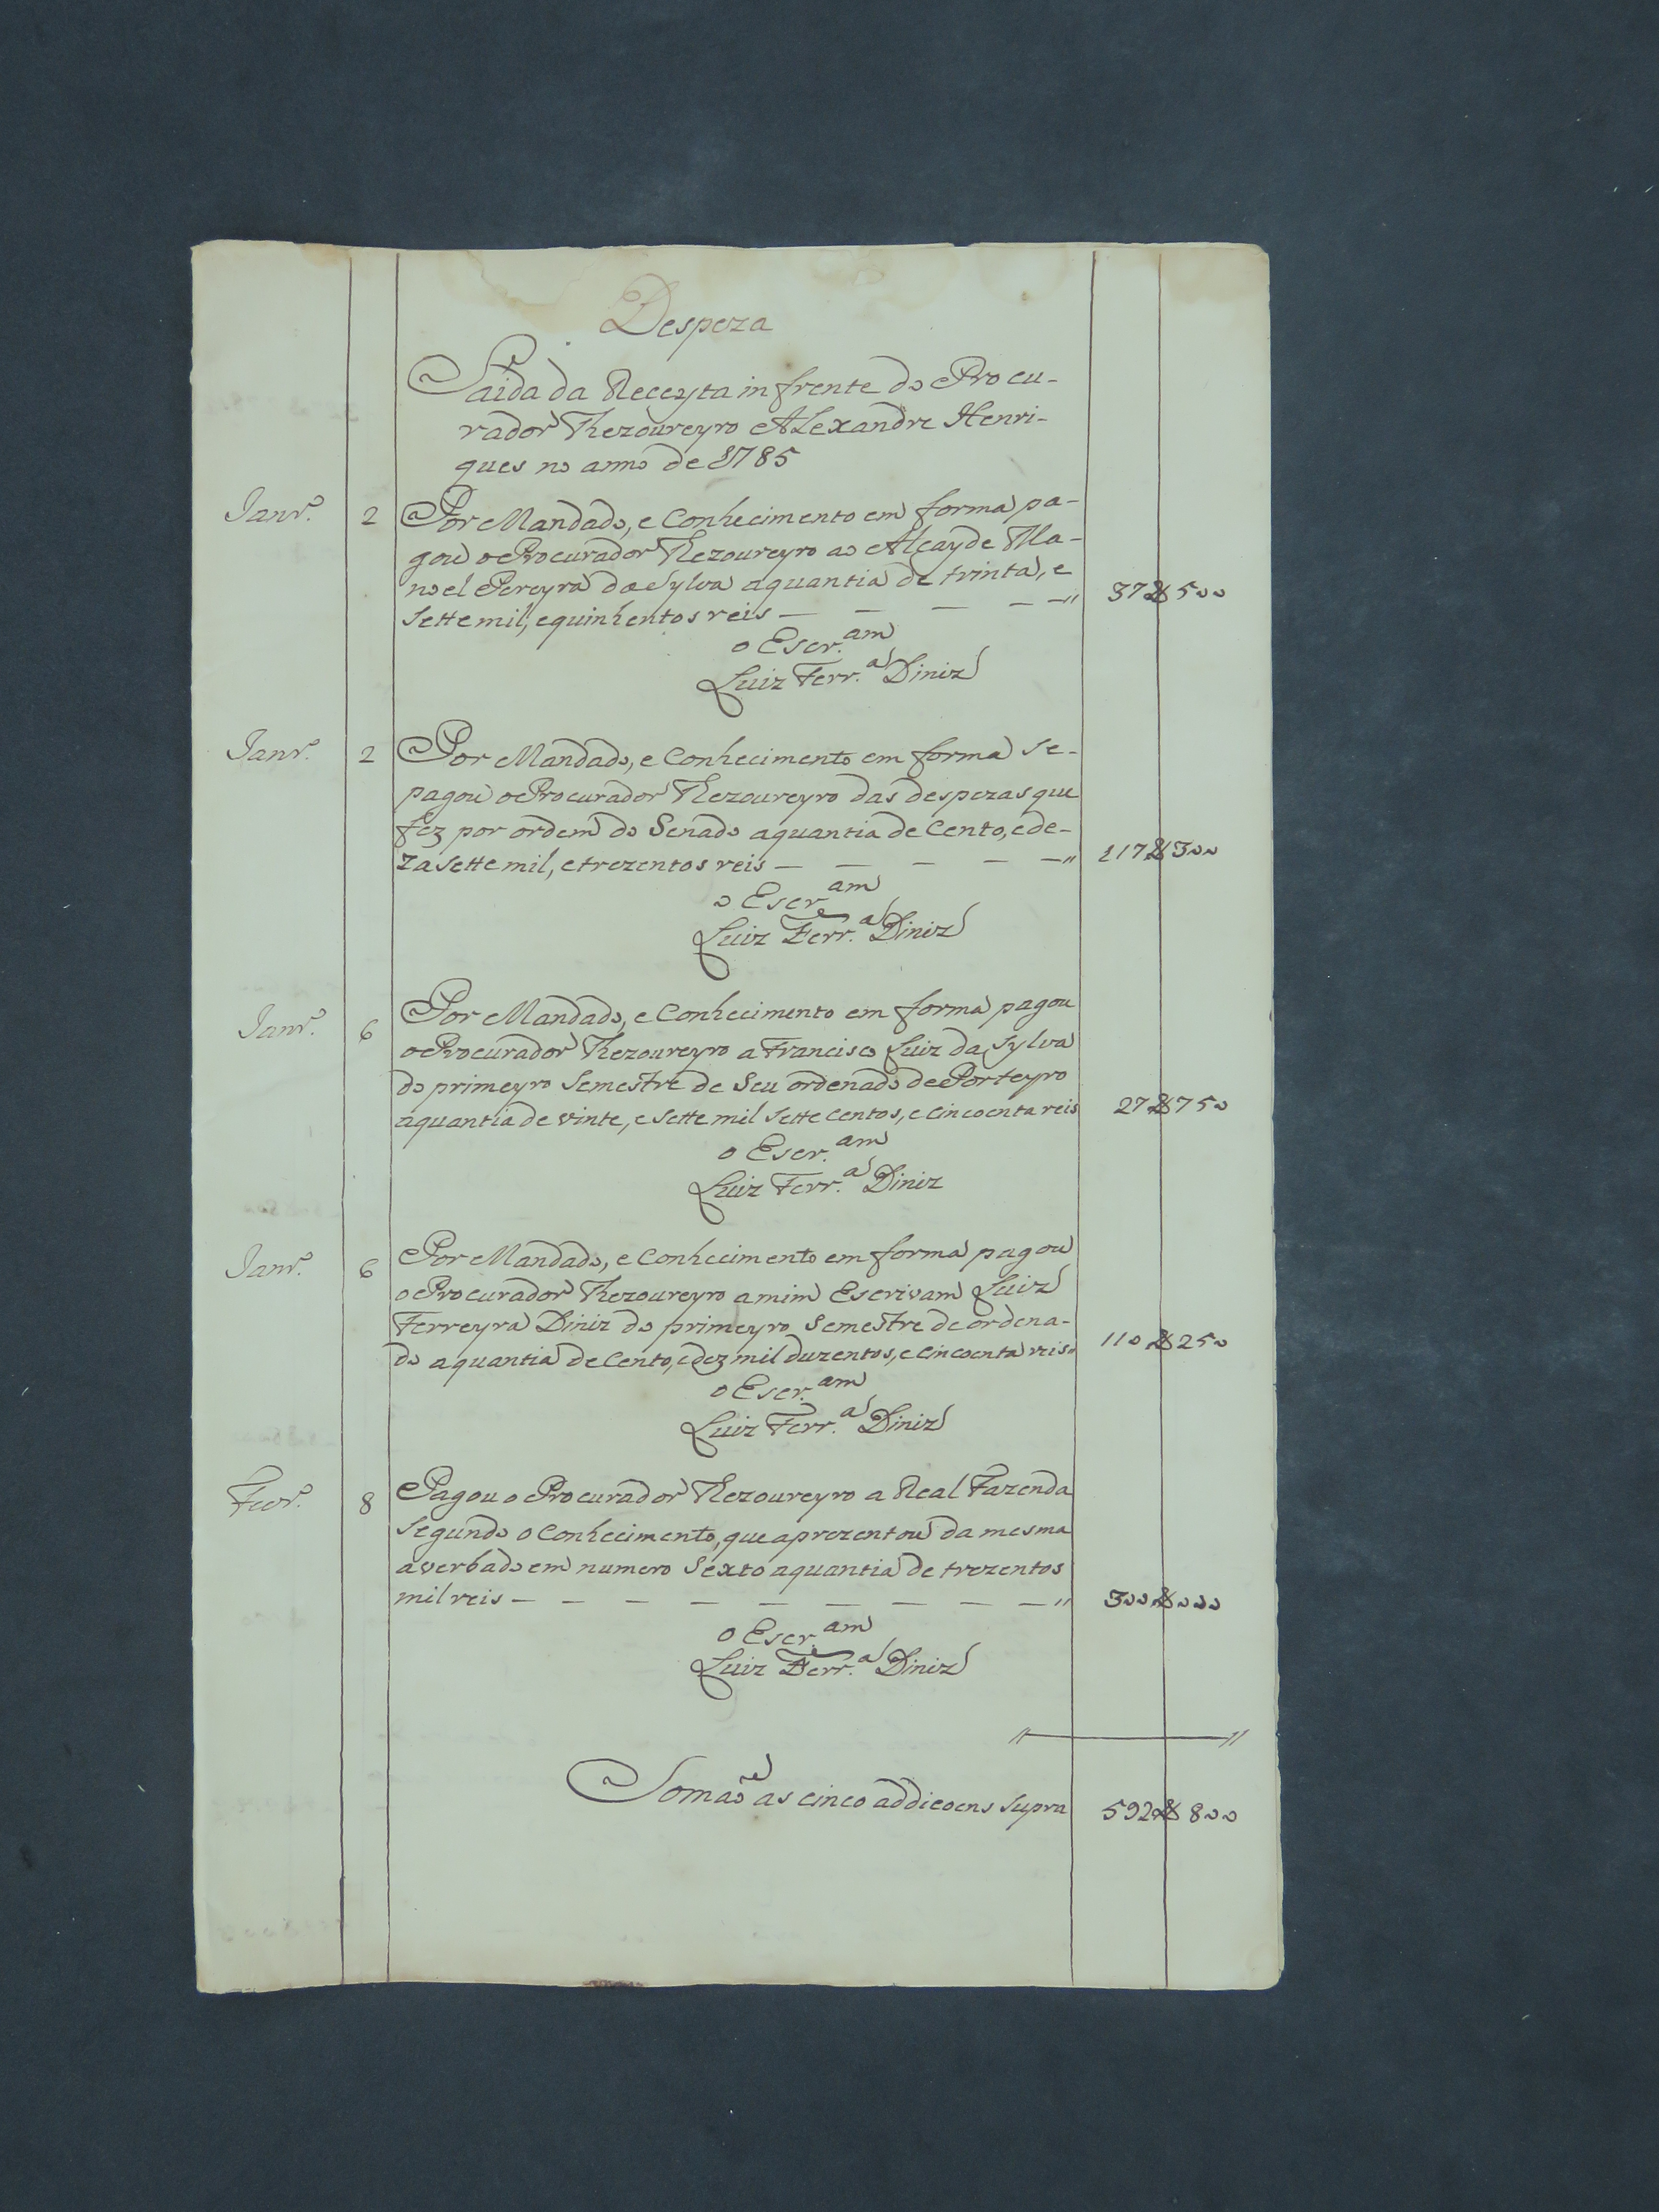 Despeza
Saida da Receyta in frente do Procu-
rador Thezoureyro Alexandre Henri-
ques no anno de 1785
Janr.º 2 Por Mandado, e Conhecimento em forma pa-
gou o Procurador Thezoureyro ao Alcayde Ma-
noel Pereyra da Sylva a quantia de trinta, e
sette mil, e quinhentos reis — — — — —" 37$500
o Escr.am
Luiz Ferr.a Diniz
Janr.º 2 Por Mandado, e Conhecimento em forma se-
pagou o Procurador Thezoureyro das despezas que
fez por ordem do Senado a quantia de Cento, e de-
zasette mil, e trezentos reis — — — — —" 117$300
o Escr.am
Luiz Ferr.a Diniz
Janr.º 6 Por Mandado, e Conhecimento em forma pagou
o Procurador Thezoureyro a Francisco Luiz da Sylva
do primeyro Semestre de Seu ordenado de Porteyro
a quantia de vinte, e sette mil sette centos, e cincoenta reis 27$750
o Escr.am
Luiz Ferr.a Diniz
Janr.º 6 Por Mandado, e Conhecimento em forma pagou
o Procurador Thezoureyro a mim Escrivam Luiz
Ferreyra Diniz do primeyro Semestre de ordena-
do a quantia de Cento, e dez mil duzentos, e cincoenta reis" 110$250
o Escr.am
Luiz Ferr.a Diniz
Fevr.º 8 Pagou o Procurador Thezoureyro a Real Fazenda
segundo o Conhecimento, que aprezentou da mesma
averbado em numero Sexto a quantia de trezentos
mil reis — — — — — — — — — —" 300$000
o Escr.am
Luiz Ferr.a Diniz
Somaõ as cinco addicoens supra 592$800